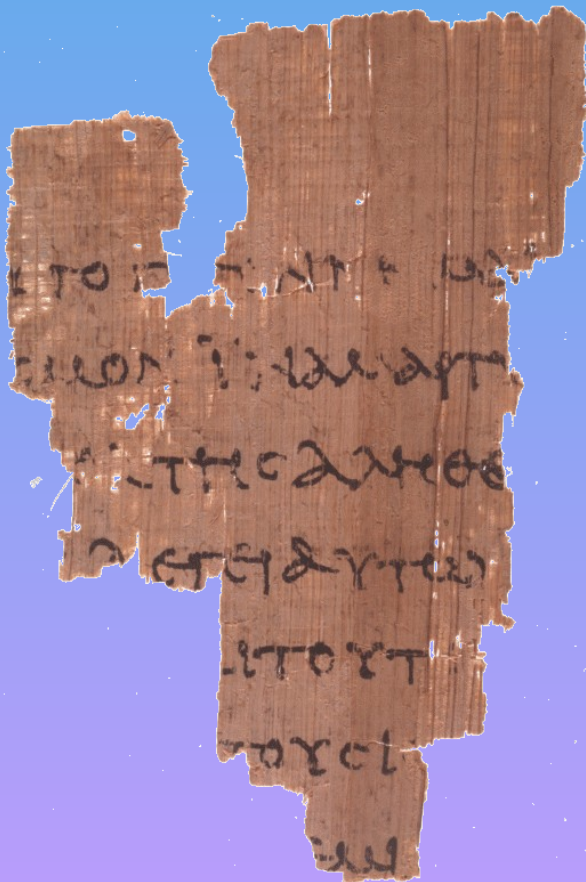 ΤΟ Γ ΓΕΝΝΗΜΑΙ
CΜΟΝ ΙΝΑ ΜΑΡΤΥ
ΤΗC ΑΛΗΘΕ
ΛΕΓΕΙ ΑΥΤΩ
ΑΙ ΤΟΥΤ
ΤΟΥC Ι
ΕΜΙ